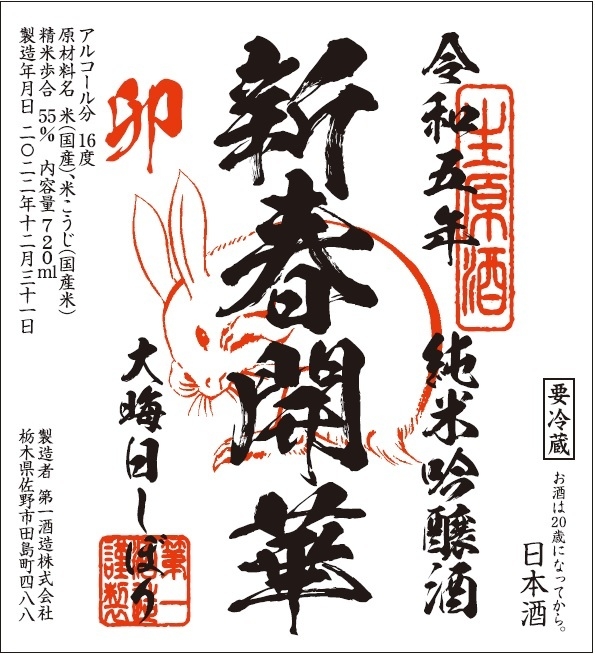 令和五年
生原酒
純米吟醸酒
要冷蔵
お酒は20歳になってから。
日本酒
新春開華
卯
大晦日しぼり
第一
酒造
謹製
アルコール分 16度
原材料名 米(国産)、米こうじ(国産米)
精米歩合 55% 内容量 720ml
製造年月日 二〇二二年十二月三十一日
製造者 第一酒造株式会社
栃木県佐野市田島町四八八